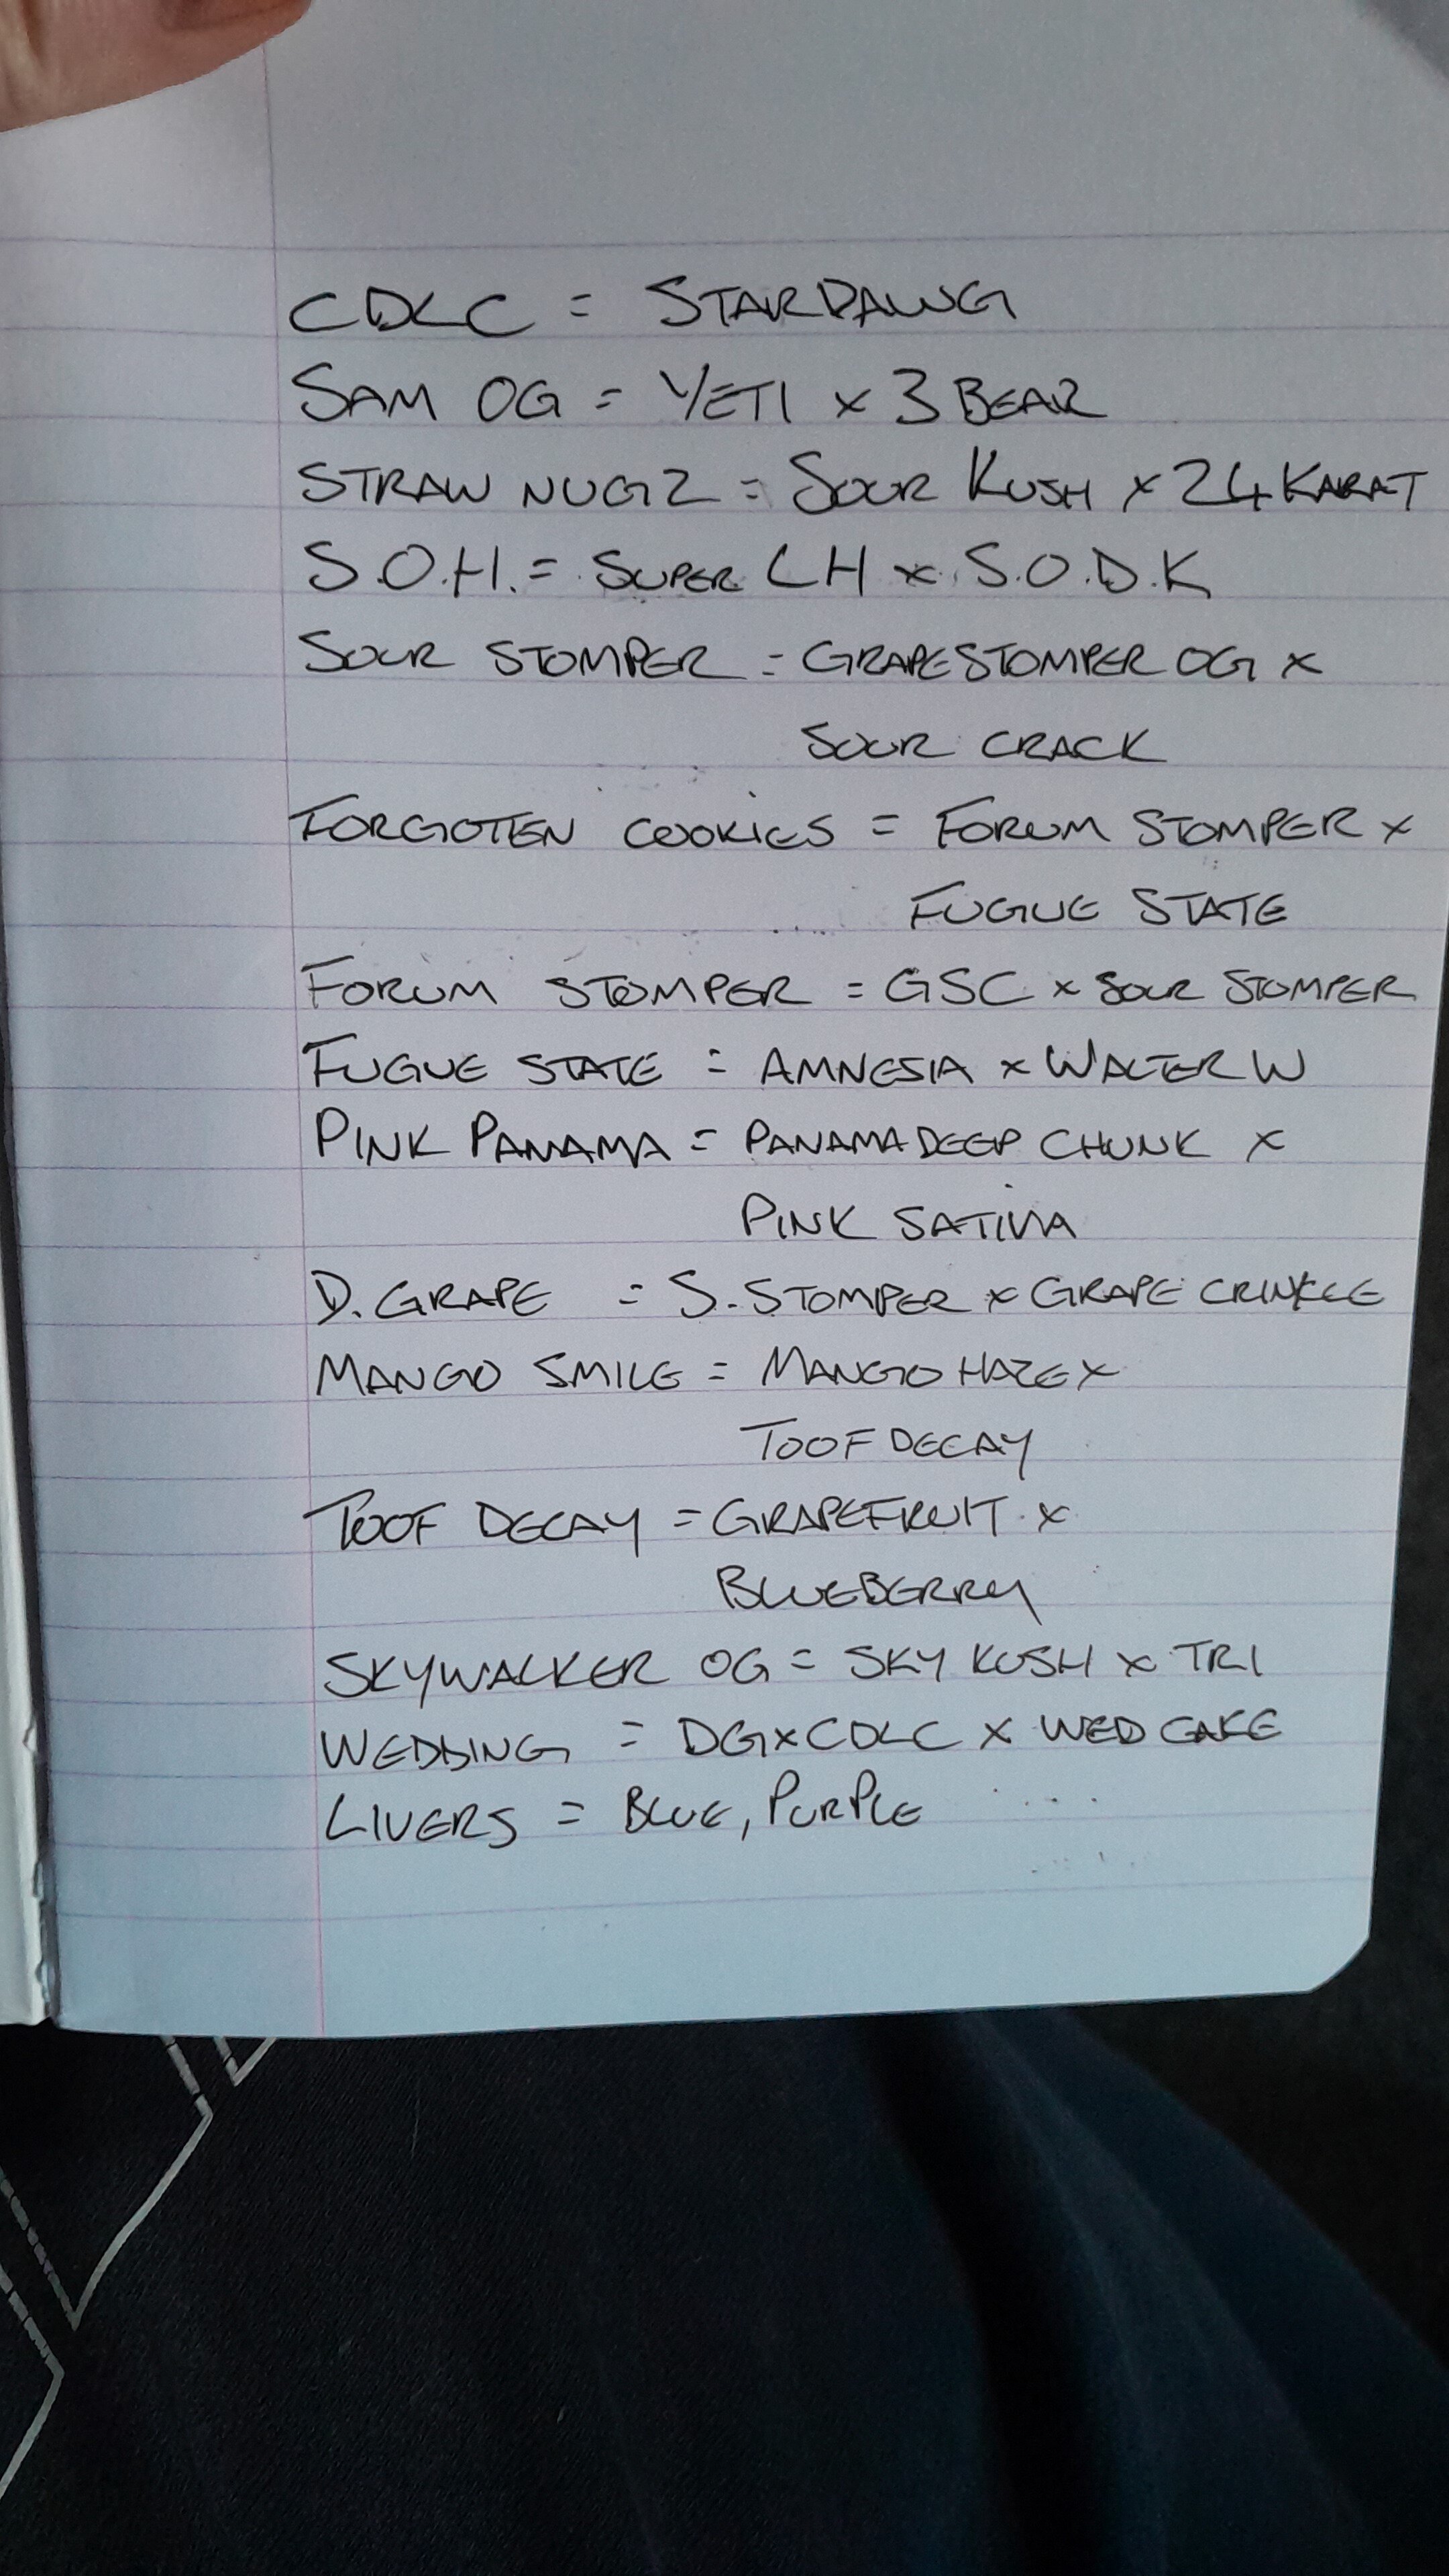 CDLC = STARDAWG
SAM OG = YETI x 3 BEAR
STRAW NUGZ = SOUR KUSH x 24 KARAT
S.O.H. = SUPER LH x S.O.D.K
SOUR STOMPER = GRAPESTOMPER OG x
SOUR CRACK
FORGOTEN COOKIES = FORUM STOMPER x
FUGUE STATE
FORUM STOMPER = GSC x SOUR STOMPER
FUGUE STATE = AMNESIA x WALTER W
PINK PANAMA = PANAMA DEEP CHUNK x
PINK SATIVA
D. GRAPE = S. STOMPER x GRAPE CRINKLE
MANGO SMILE = MANGO HAZE x
TOOF DECAY
TOOF DECAY = GRAPEFRUIT x
BLUEBERRY
SKYWALKER OG = SKY KUSH x TRI
WEDDING = DG x CDLC x WED CAKE
LIVERS = BLUE, PURPLE